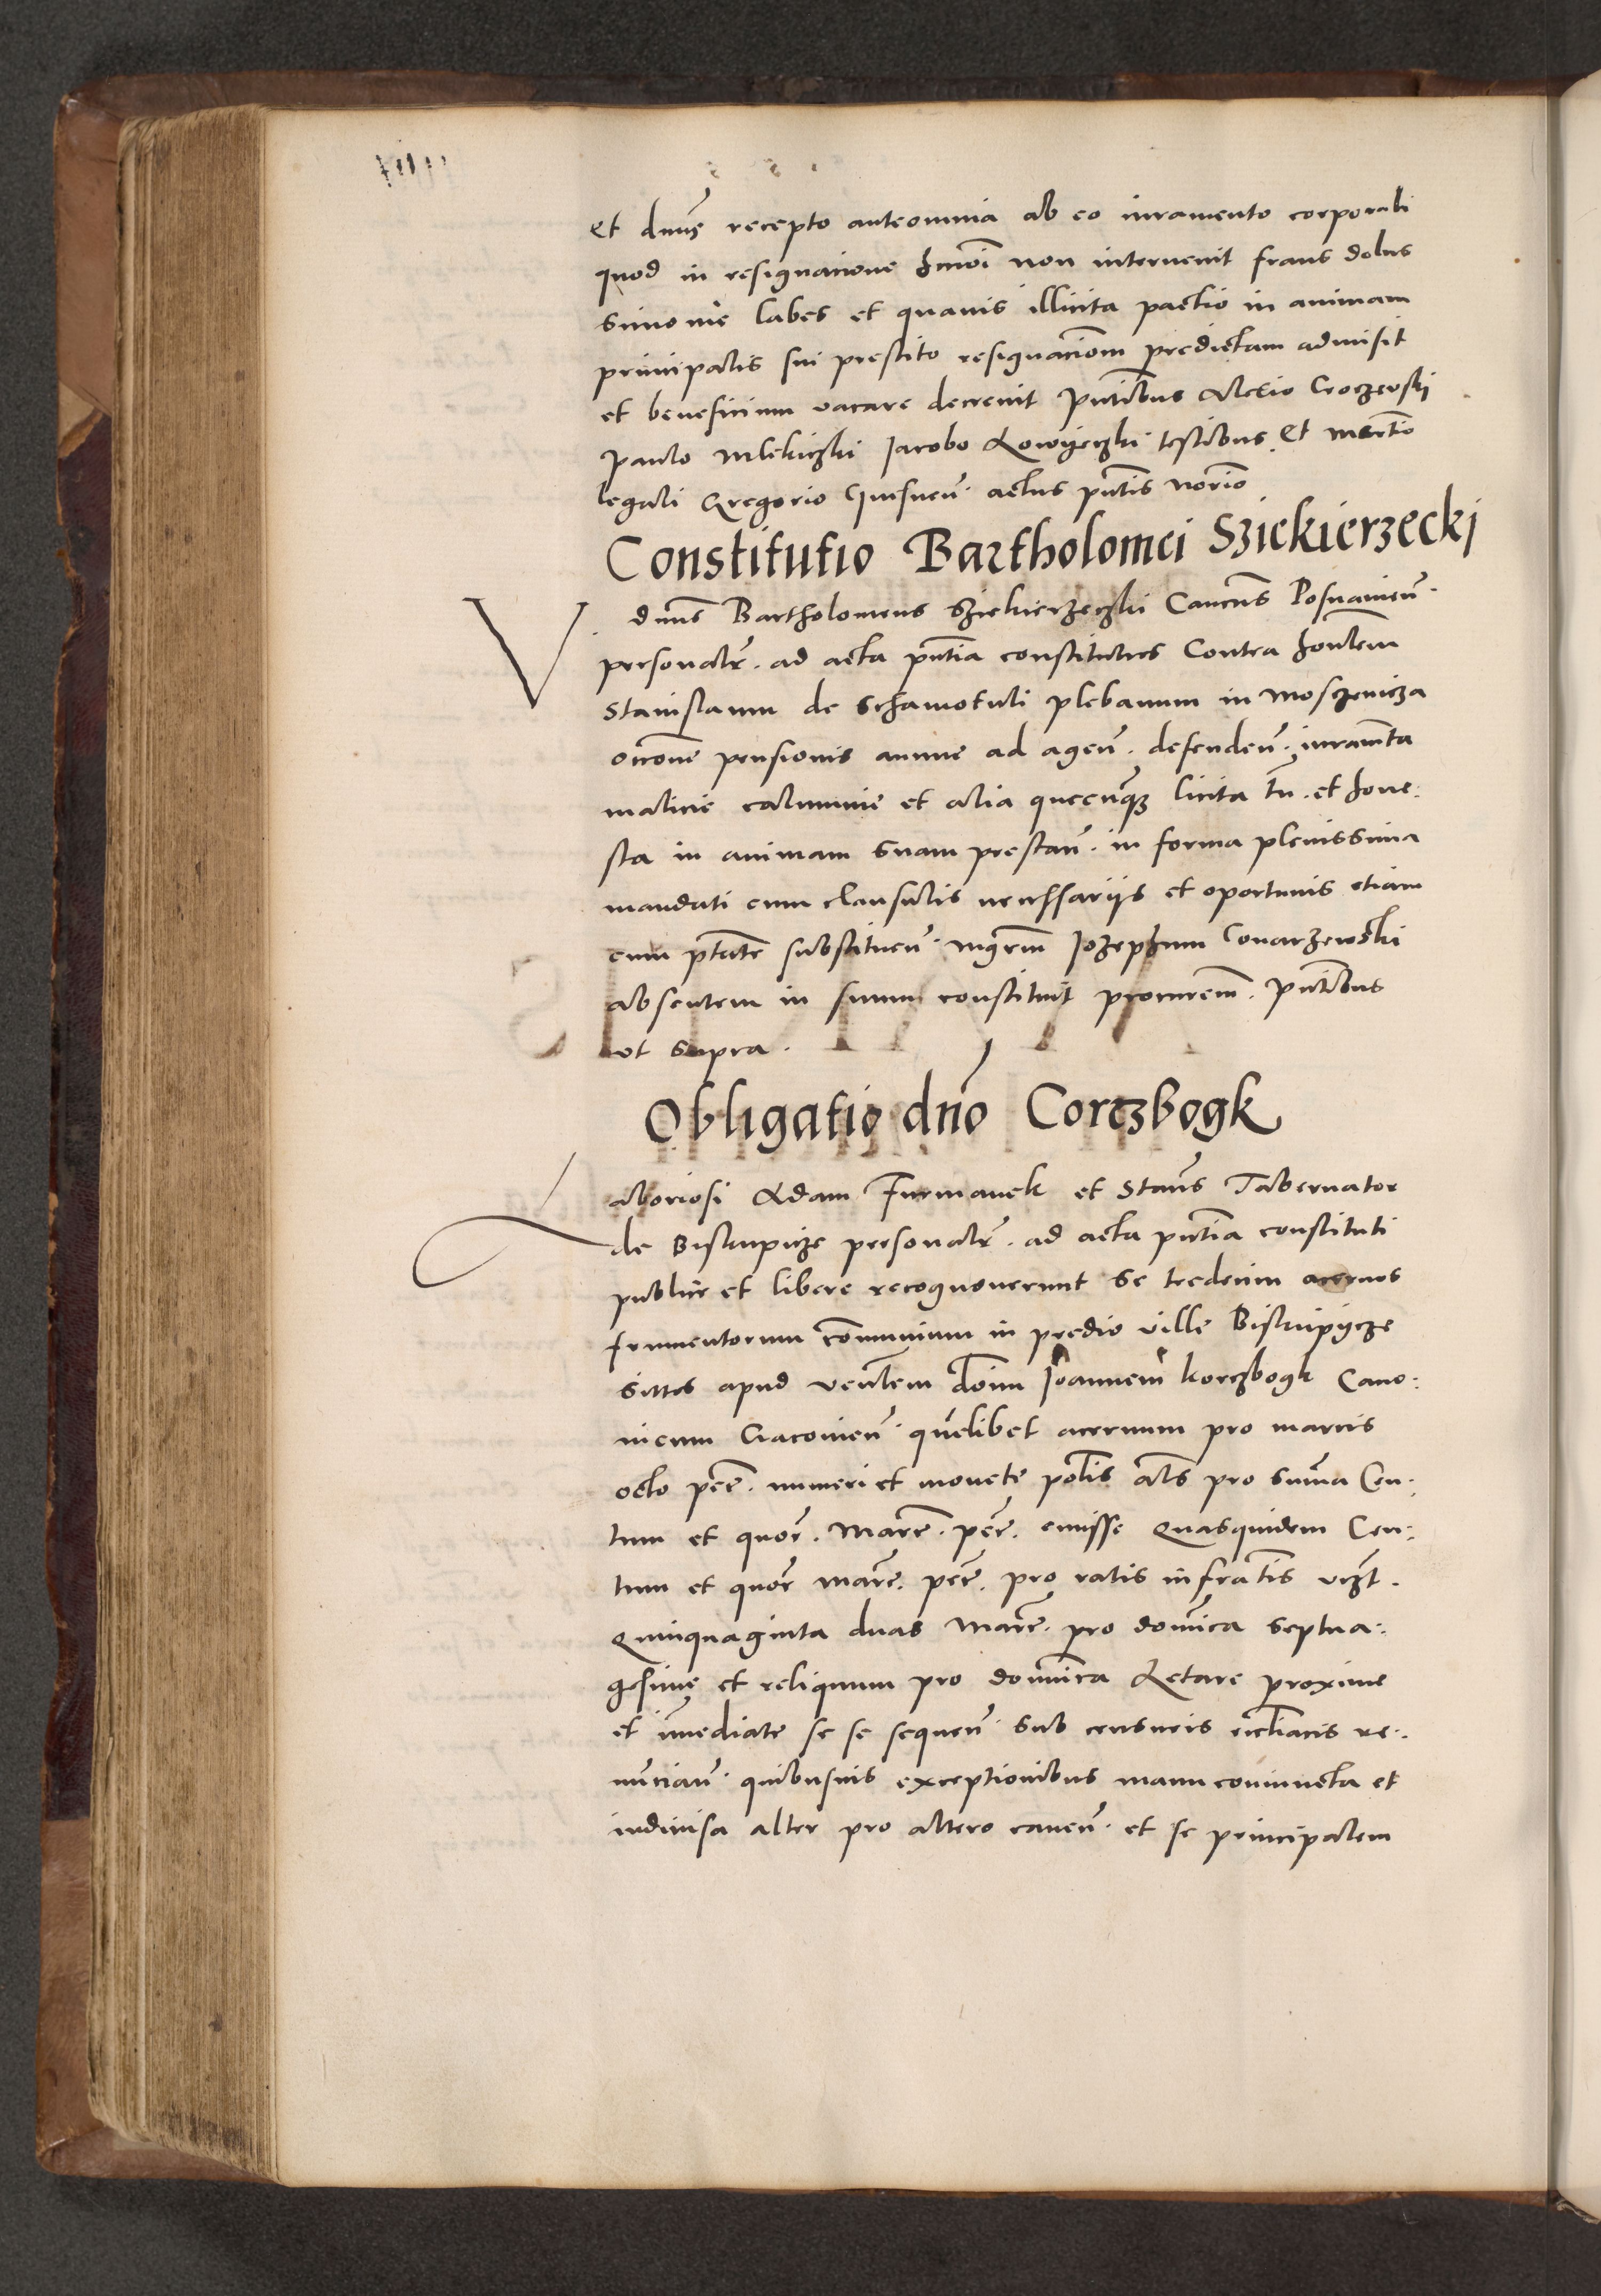 et dnus recepto anteomnia ab eo iuramento corporali
quod in resignacione hmoi non interuenit fraus dolus
simonie labes et quauis illicita pactio in animam
principalis sui prestito resignacionem predictam admisit
et beneficium vacare decreuit pntibus Alexio Croczewski
Paulo Mlekiczki Jacobo Lowyeczki testibus Et me
legali Gregorio Gnesnen. actus pntis norio
Constitutio Bartholomei Sziekierzecki
V. dnus Bartholomeus Sziekierzeczki Cancus Posnanien.
personalr. ad acta pntia constitutus Contra honlem
Stanislaum de Schamotuli plebanum in Mosczenicza
occone pensionis annue ad agen. defenden. iuramta
malicie calumnie et alia quecunqz licita tn. et hone:
sta in animam suam prestan. in forma plenissima
mandati cum clausulis necessariis et oportunis etiam
cum ptate substituen. mgrm Jozephum Conarzewski
absentem in suum constituit procurem. Pntibus
vt supra.
Obligatio dno Corczbogk
Laboriosi Adam Furmanek et Staus Tabernator
de Biskupicze personalr. ad acta pntia constituti
publice et libere recognouerunt se tredecim aceruos
frumentorum communium in predio ville Biskupycze
sittos apud venlem dom Joannem Korczbogk Cano:
nicum Cracouien. quelibet aceruum pro marcis
octo pecc. numeri et monete polis als pro summa Cen:
tum et quor. Marc. pecc. emisse Quasquidem Cen:
tum et quor marc. pecc. pro ratis infratis vczt.
Quinquaginta duas marc. pro domica Septua:
gesime et reliquum pro domica Letare proxime
et immediate se se sequen. sub censuris ecclacis re:
nuncian. quibusuis exceptionibus manu coniuncta et
indiuisa alter pro altero cauen. et se principalem